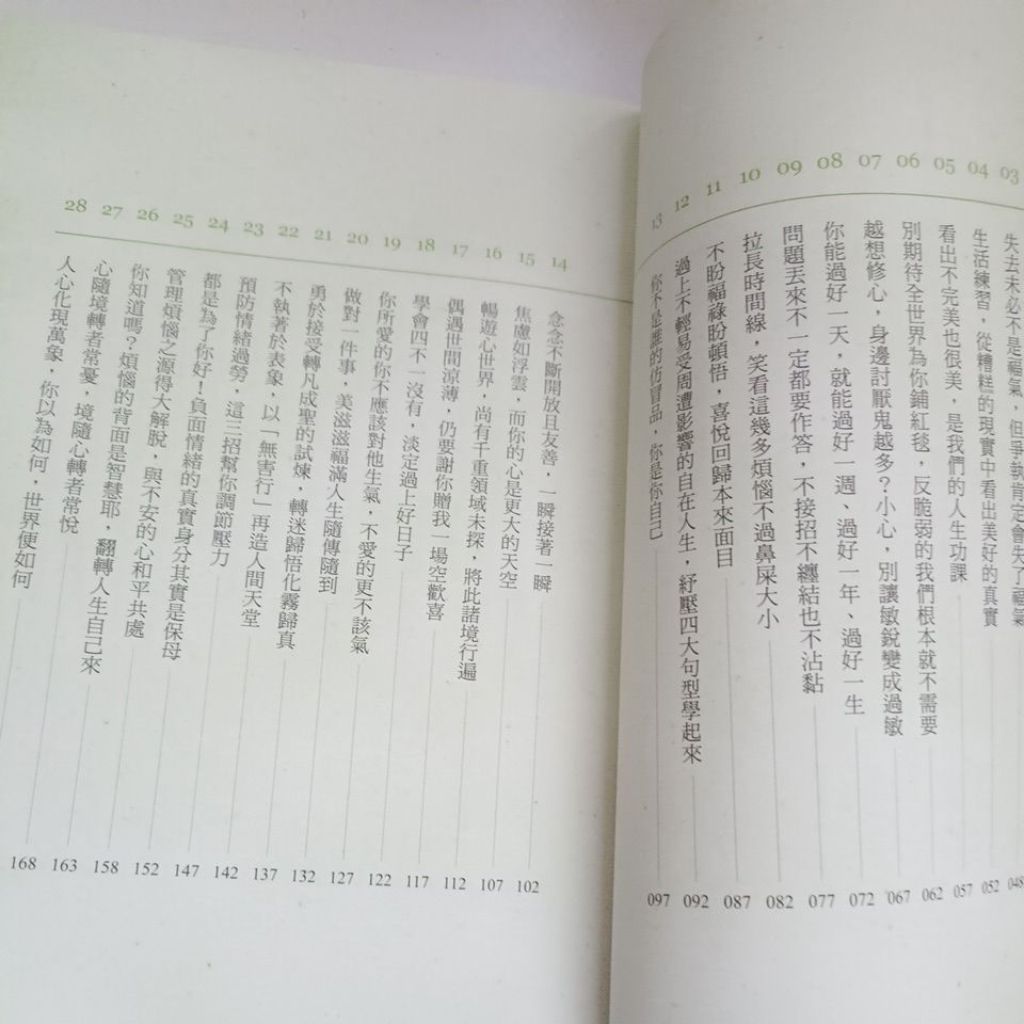 03 失去未必不是福氣，但爭執肯定會失了福氣 048
04 生活練習，從糟糕的現實中看出美好的真實 052
05 看出不完美也很美，是我們的人生功課 057
06 別期待全世界為你鋪紅毯，反脆弱的我們根本就不需要 062
07 越想修心，身邊討厭鬼越多？小心，別讓敏銳變成過敏 067
08 你能過好一天，就能過好一週、過好一年、過好一生 072
09 問題丟來不一定都要作答，不接招不纏結也不沾黏 077
10 拉長時間線，笑看這幾多煩惱不過鼻屎大小 082
11 不盼福祿盼頓悟，喜悅回歸本來面目 087
12 過上不輕易受周遭影響的自在人生，紓壓四大句型學起來 092
13 你不是誰的仿冒品，你是你自己 097
14 念念不斷開放且友善，一瞬接著一瞬 102
15 焦慮如浮雲，而你的心是更大的天空 107
16 暢遊心世界，尚有千重領域未探，將此諸境行遍 112
17 偶遇世間涼薄，仍要謝你贈我一場空歡喜 117
18 學會四不一沒有，淡定過上好日子 122
19 你所愛的你不應該對他生氣，不愛的更不該氣 127
20 做對一件事，美滋滋福滿人生隨傳隨到 132
21 勇於接受轉凡成聖的試煉，轉迷歸悟化霧歸真 137
22 不執著於表象，以「無害行」再造人間天堂 142
23 預防情緒過勞，這三招幫你調節壓力 147
24 都是為了你好！負面情緒的真實身分其實是保母 152
25 管理煩惱之源得大解脫，與不安的心和平共處 158
26 你知道嗎？煩惱的背面是智慧耶，翻轉人生自己來 163
27 心隨境轉者常憂，境隨心轉者常悅 168
28 人心化現萬象，你以為如何，世界便如何